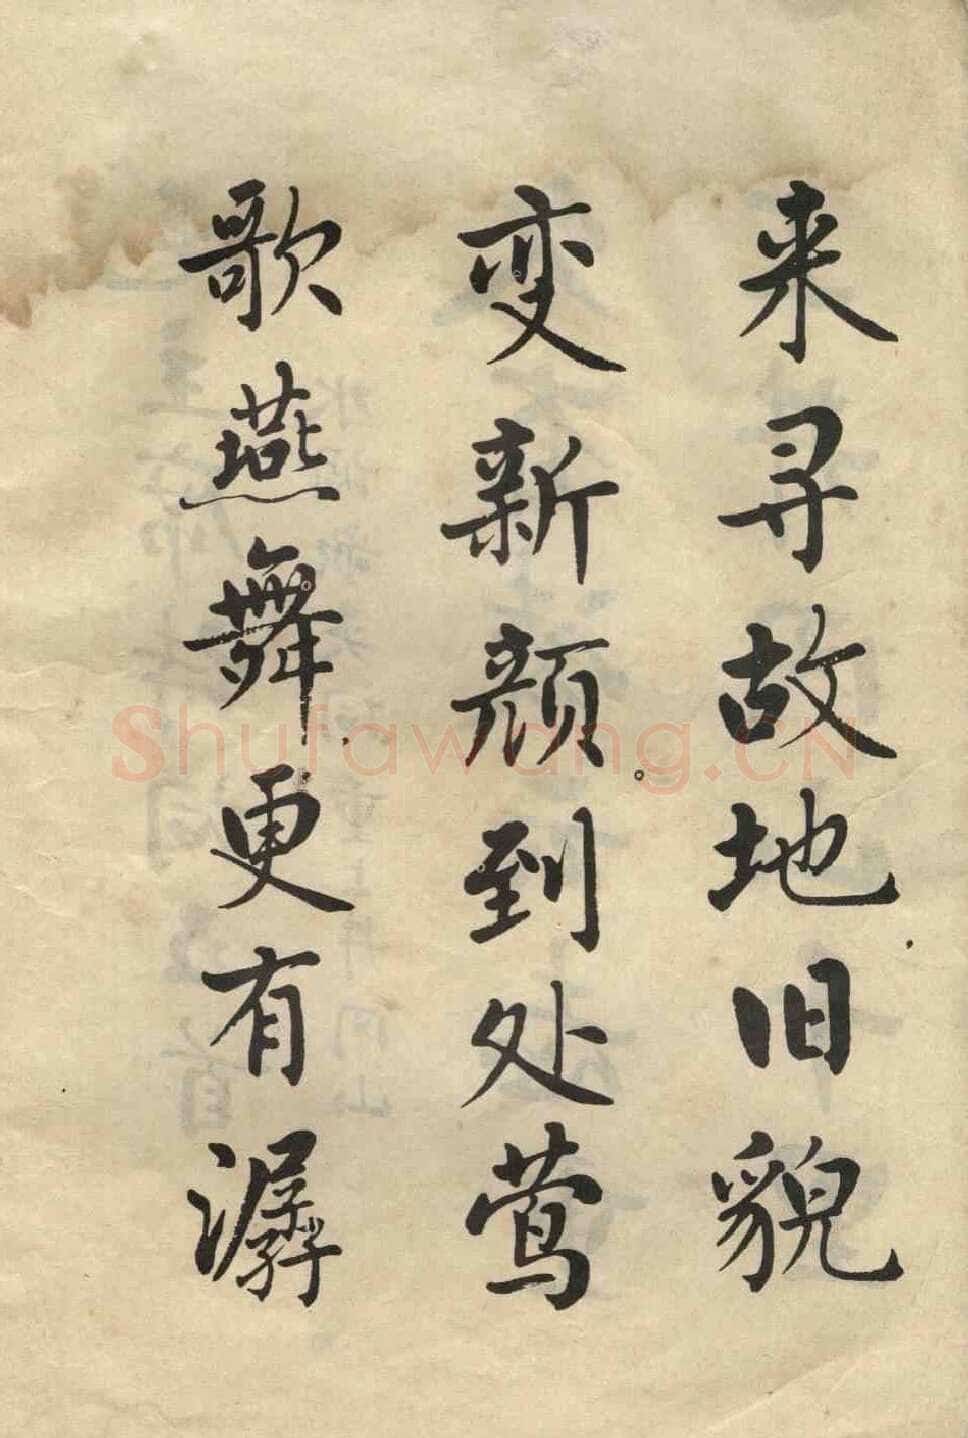 来寻故地旧貌
变新颜。到处莺
歌燕舞，更有潺
Shufawang.CN